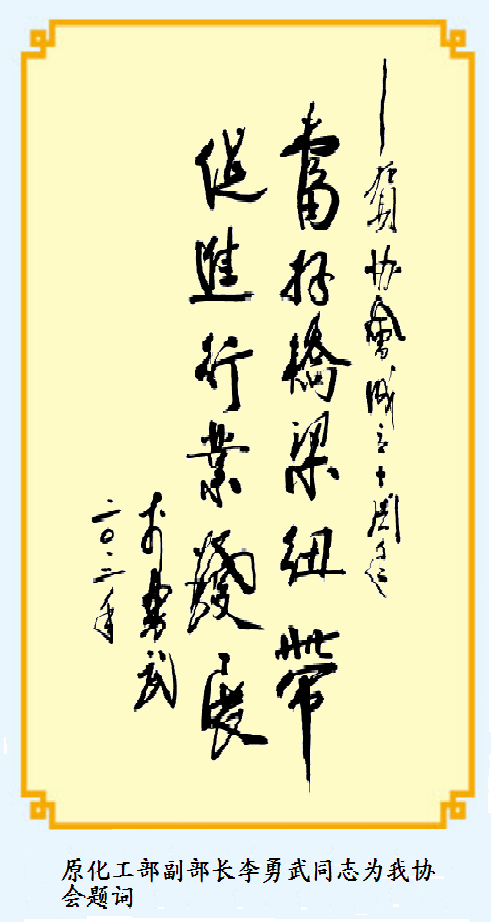 ——贺协會成立十周年
當好橋梁紐帶
促進行業發展
李勇武
二〇一二年
原化工部副部长李勇武同志为我协
会题词